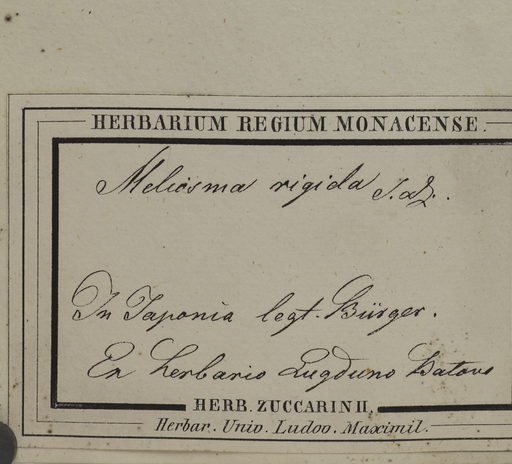 HERBARIUM REGIUM MONACENSE.
Meliosma rigida S. & Z.
In Japonia legt. Bürger.
Ex herbario Lugduno Batavo
HERB. ZUCCARINII.
Herbar. Univ. Ludov. Maximil.